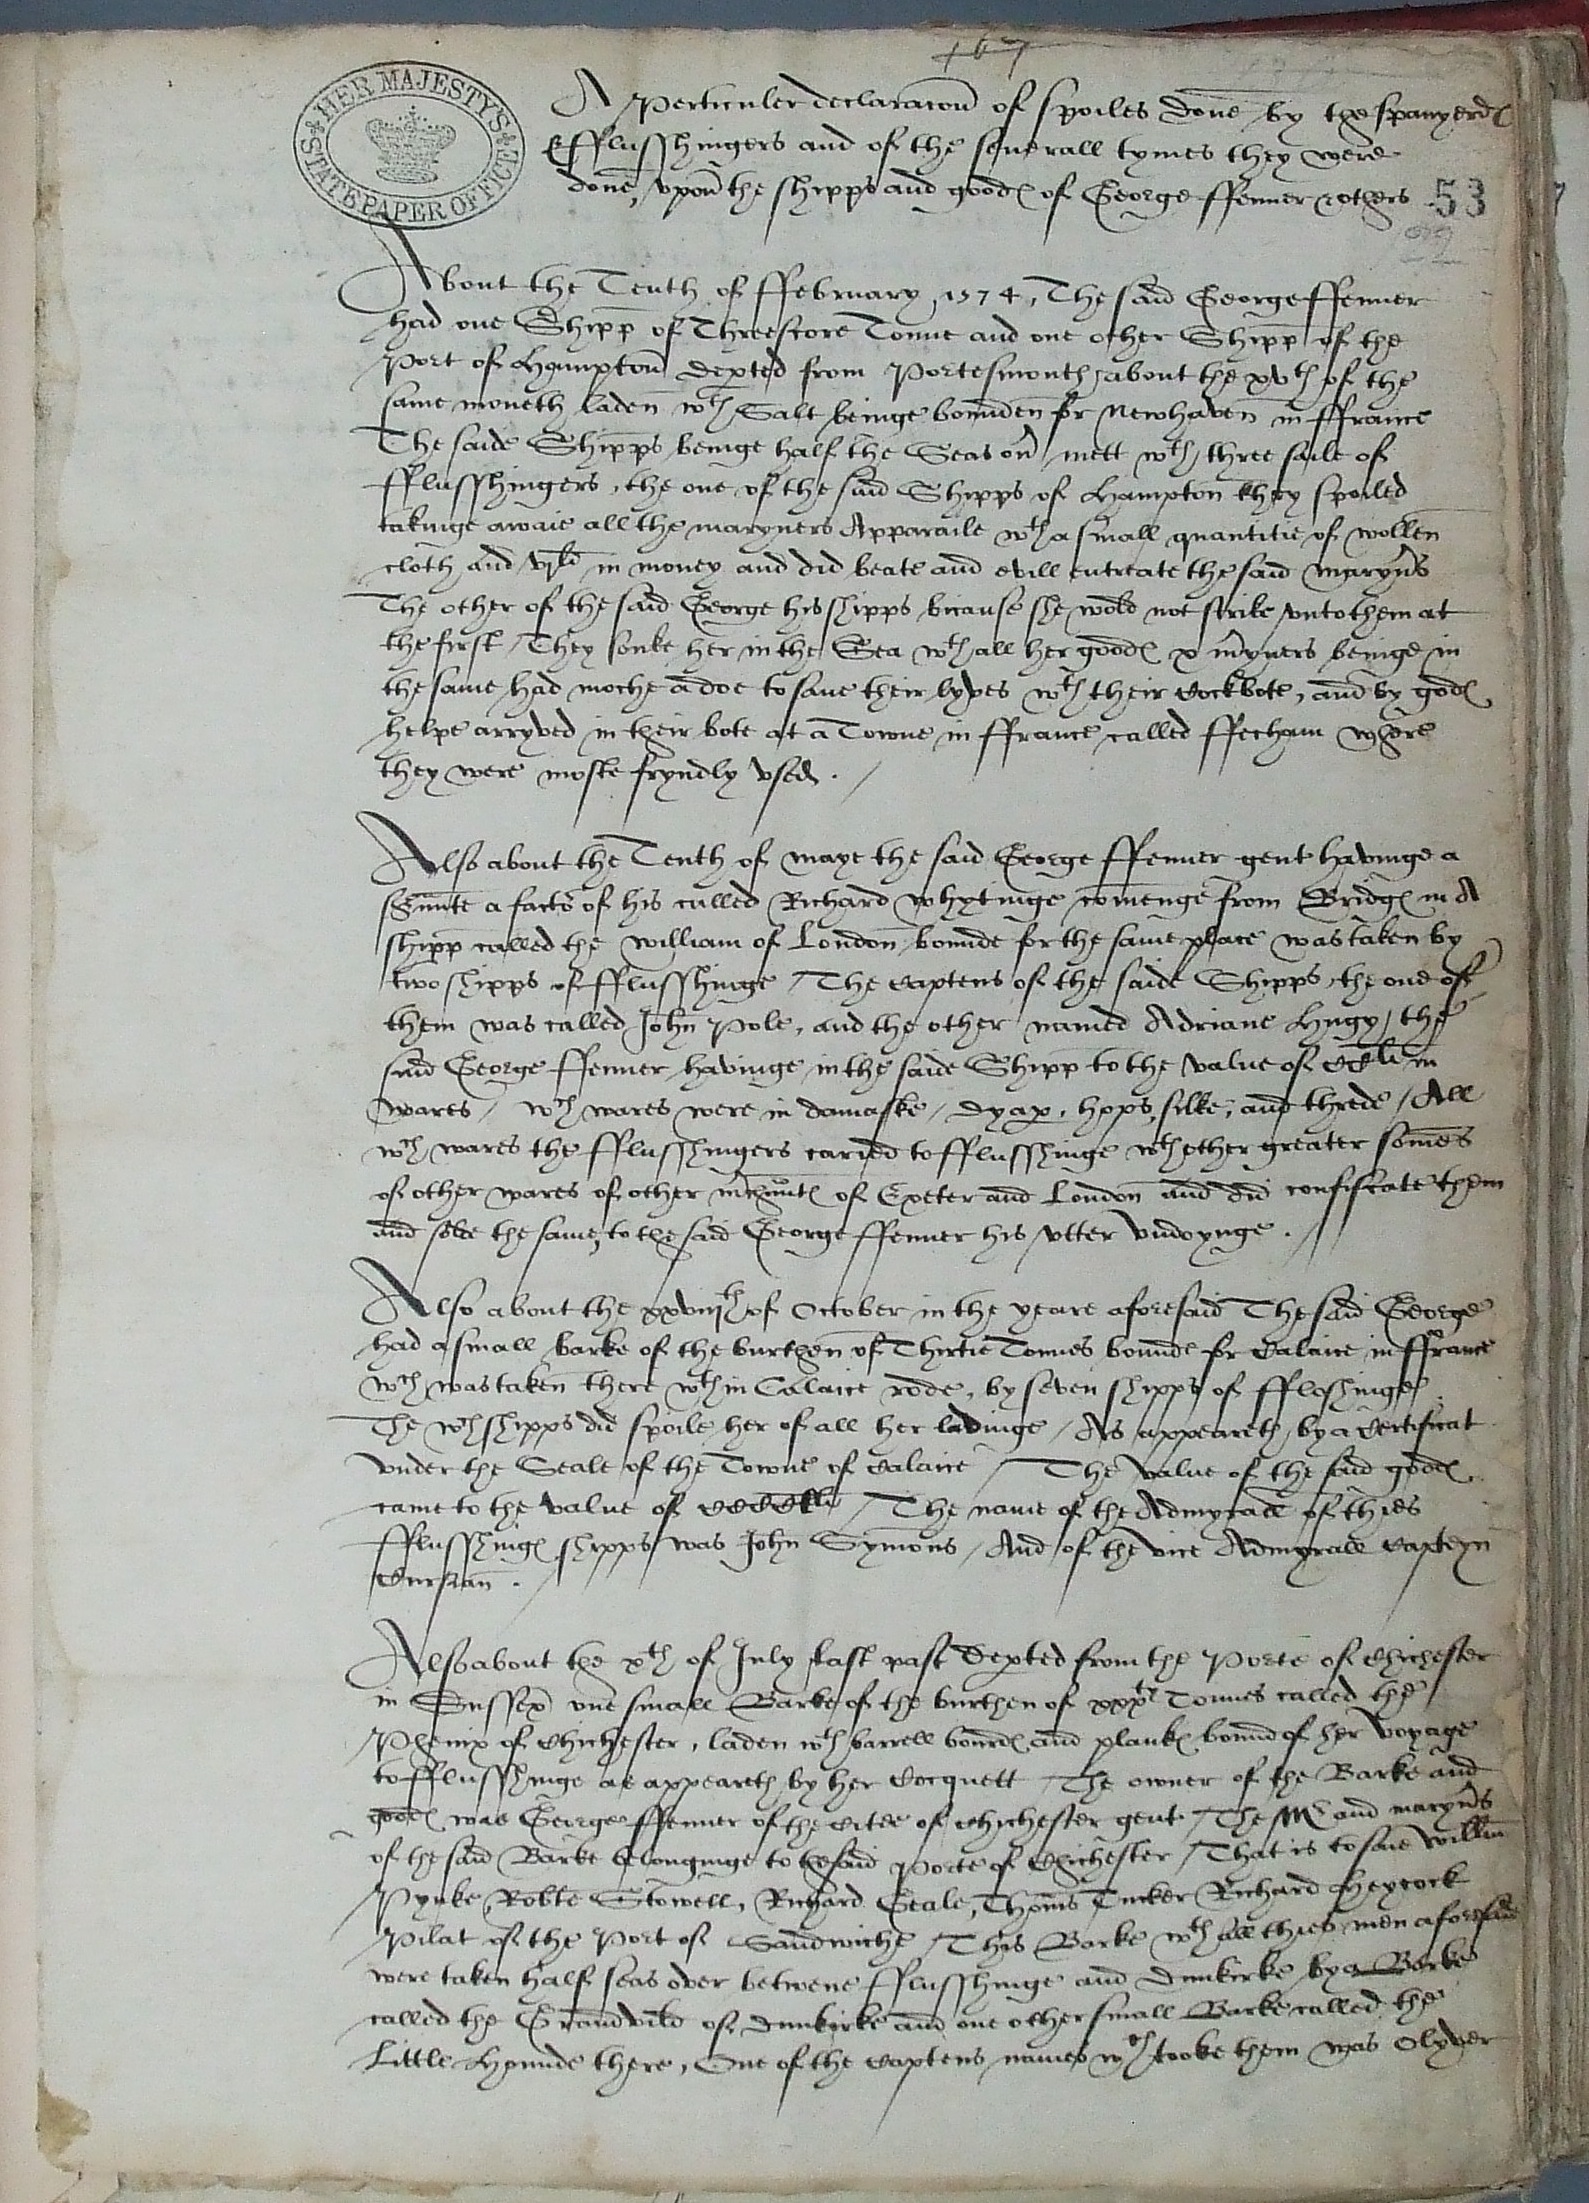 167
HER MAJESTY'S STATE PAPER OFFICE
A perticuler declaracon of spoiles done by the spanyerdes
& fflusshingers and of the severall tymes they were
done, vpon the shipps and goodes of George ffenner & others
53
About the Tenth of ffebruary 1574, The said George ffenner
had one Shipp of Threescore Tonne and one other Shipp of the
Port of Hampton depted from Portesmouth about the xvth of the
same moneth laden wth Salt beinge bounden for Newhaven in ffrance
The saide Shipps beinge half the Seas on mett wth three saile of
fflusshingers, the one of the said Shipps of Hampton they spoiled
takinge awaie all the maryners Apparaile wth a small quantitie of wollen
cloth and vjli in money and did beate and evill entreate the said maryns
The other of the said George his shipps bicause she wold not strike vnto them at
the first / They sonke her in the Sea wth all her goodes x mryners beinge in
the same had moche a doe to save their lyves wth their Cockbote, and by godes
helpe arryved in their bote at a Towne in ffrance called ffecham where
they were moste fryndly vsed. /
Also about the Tenth of maye the said George ffenner gent havinge a
srvnnte a factor of his called Richard whytinge comenge from Bridges in A
shipp called the william of London bounde for the same place was taken by
two shipps of fflusshinge / The Captens of the saide Shipps, the one of
them was called John Pole, and the other named Adriane Hugy, the
said George ffenner havinge in the saide Shipp to the value of CCli in
wares / wch wares were in damaske / dyap, hopps, silke, and threde / All
wch wares the fflusshingers caried to fflusshinge wth other greater somes
of other wares of other mchauntes of Exeter and London and did confiscate them
and solde the same, to the said George ffenner his vtter vndoynge. /
Also about the xxviijth of October in the yeare aforesaid The said George
had a small barke of the burthen of Thirtie Tonnes bounde for Calaice in ffrance
wch was taken there wthin Calaice rode, by seven shipps of ffloshinge
The wch shipps did spoile her of all her ladinge / As appeareth by a Certificat
vnder the Seale of the Towne of Calaice / The value of the said goodes
came to the value of / The name of the Admyrall of thies
fflusshinges shipps was John Symons / And of the vice Admyrall Capteyn
.
Also about the xth of July last past depted from the Porte of Chichester
in Sussex one small Barke of the burthen of xxxtie Tonnes called the
Phenix of Chichester, laden wth barrell bourdes and plankes bound of her voyage
to fflusshinge as appeareth by her Cocquett / The owner of the Barke and
goodes was George ffenner of the Citee of Chichester gent / The Mr and maryns
of the said Barke belonginge to the said Porte of Chichester / That is to saie willm
Pynke, Robte Stowell, Richard Seale, Thoms Tucker Richard Heycock
Pilat of the Port of Sandwiche / This Barke wth all thies men aforesaid
were taken half seas over betwene fflusshinge and Dunkirke by a Barke
called the of Dunkirke and one other small Barke called the
Little Hounde there, One of the Captens names wch tooke them was Olyver